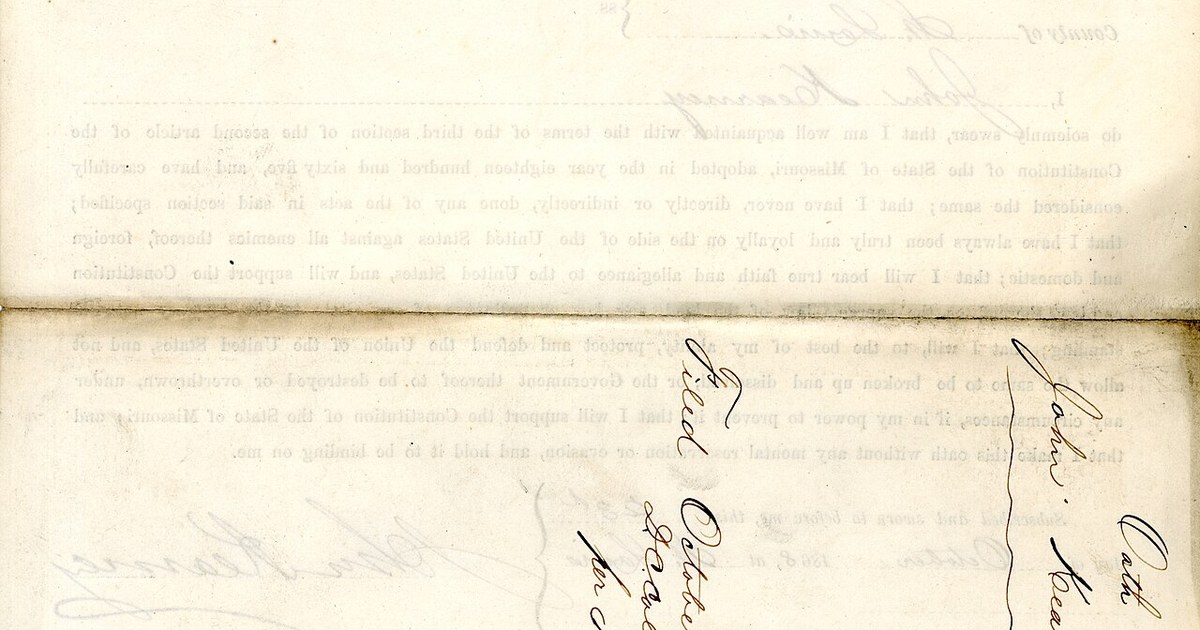 County of St Louis. } ss
I, John Kearney
do solemnly swear, that I am well acquainted with the terms of the third section of the second article of the
Constitution of the State of Missouri, adopted in the year eighteen hundred and sixty five, and have carefully
considered the same; that I have never, directly or indirectly, done any of the acts in said section specified;
that I have always been truly and loyally on the side of the United States against all enemies thereof, foreign
and domestic; that I will bear true faith and allegiance to the United States, and will support the Constitution
standing; that I will, to the best of my ability, protect and defend the Union of the United States, and not
allow the same to be broken up and dissolved, or the Government thereof to be destroyed or overthrown, under
any circumstances, if in my power to prevent it; that I will support the Constitution of the State of Missouri; and
that I make this oath without any mental reservation or evasion, and hold it to be binding on me.
Subscribed and sworn to before me, this
day of October 1868, at St Louis
John Kearney
Oath
John Kea
Filed Octobe
per